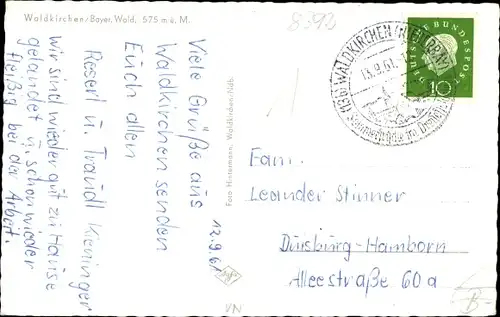 Waldkirchen/Bayer. Wald, 575 m ü. M.
8392
Viele Grüße aus
Waldkirchen senden
Euch allen
Reserl u. Traudl Kieninger
wir sind wieder gut zu Hause
gelandet u. schon wieder
fleißig bei der Arbeit.
12.9.61
Foto Hintermann, Waldkirchen/Ndb.
Agfa
(13b) WALDKIRCHEN
13.9.61
Sommerfrische im
DEUTSCHE BUNDESPOST
10
Fam.
Leander Stinner
Duisburg-Hamborn
Alleestraße 60a
VN
B-